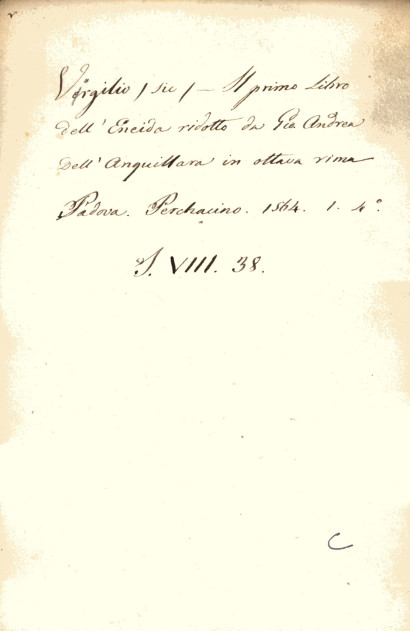 Virgilio / sic / — Il primo Libro
dell' Eneida ridotto da Gio Andrea
Dell' Anguillara in ottava rima
Padova. Perchacino. 1564. 1. 4°.
S. VIII. 38.
C